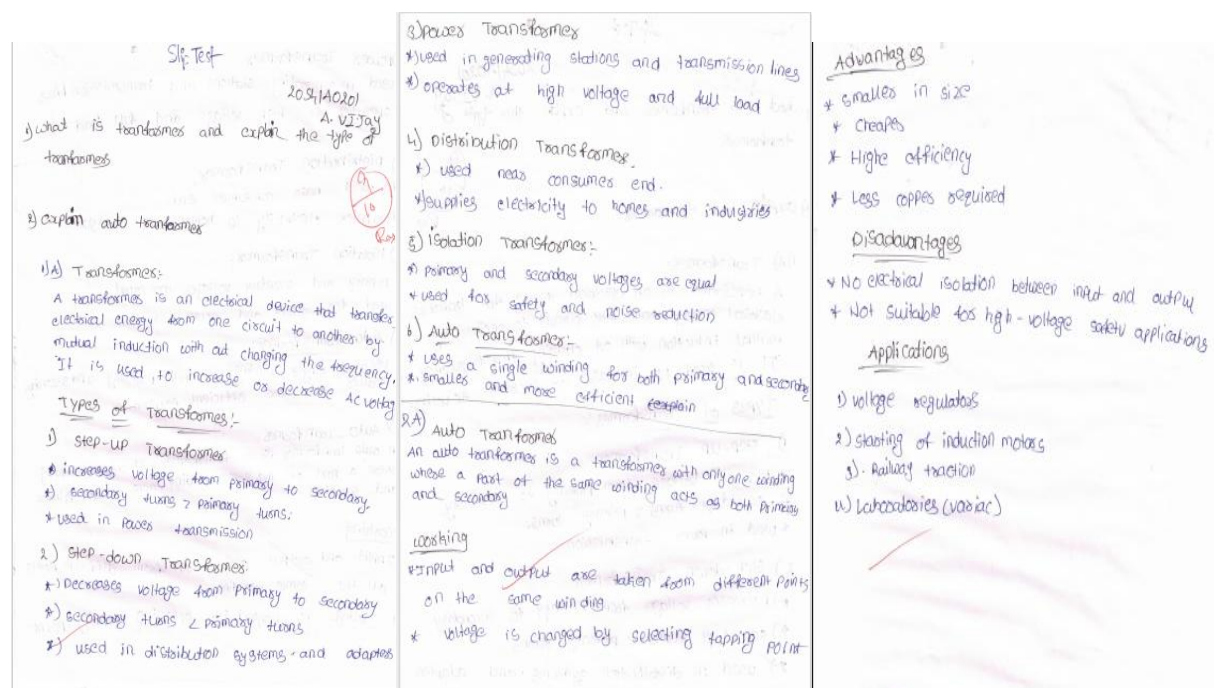 Slip Test
A. VIJay
1) what is tranformer and explain the type of
tranformers
2) explain auto tranformer
10
1)A) Transformer:-
A transformer is an electrical device that transfer
electrical energy from one circuit to another by
mutual induction with out changing the frequency.
It is used to increase or decrease AC voltag
Types of Transformes:-
1) Step-up Transformer
* increases voltage from primary to secondary.
*) secondary turns > primary turns.
* used in Power transmission
2) Step-down Transformer:
*) Decreases voltage from Primary to secondary
*) secondary turns < primary turns
*) used in distribution systems and adapters
3) Power Transformer
*) used in generating stations and transmission lines
*) operates at high voltage and full load
4) Distribution Transformer.
*) used near consumer end.
*) supplies electricity to homes and industries
5) isolation Transformer:-
*) primary and secondary voltages are equal
* used for safety and noise reduction
6) Auto Transformer:-
* uses a single winding for both primary and secondary
*. smaller and more efficient
2A)
Auto Tranformer
An auto tranformer is a transformer with only one winding
where a part of the same winding acts as both Primary
and secondary
Working
* Input and output are taken from different Points
on the same winding
* voltage is changed by selecting tapping Point
Advantages
* smaller in size
* cheaper
* Highe efficiency
* Less copper required
Disadavantages
* No electrical isolation between input and output
* Not suitable for high-voltage safety applications
Applications
1) voltage regulators
2) starting of induction motors
3). Railway traction
4) Laboratories (variac)